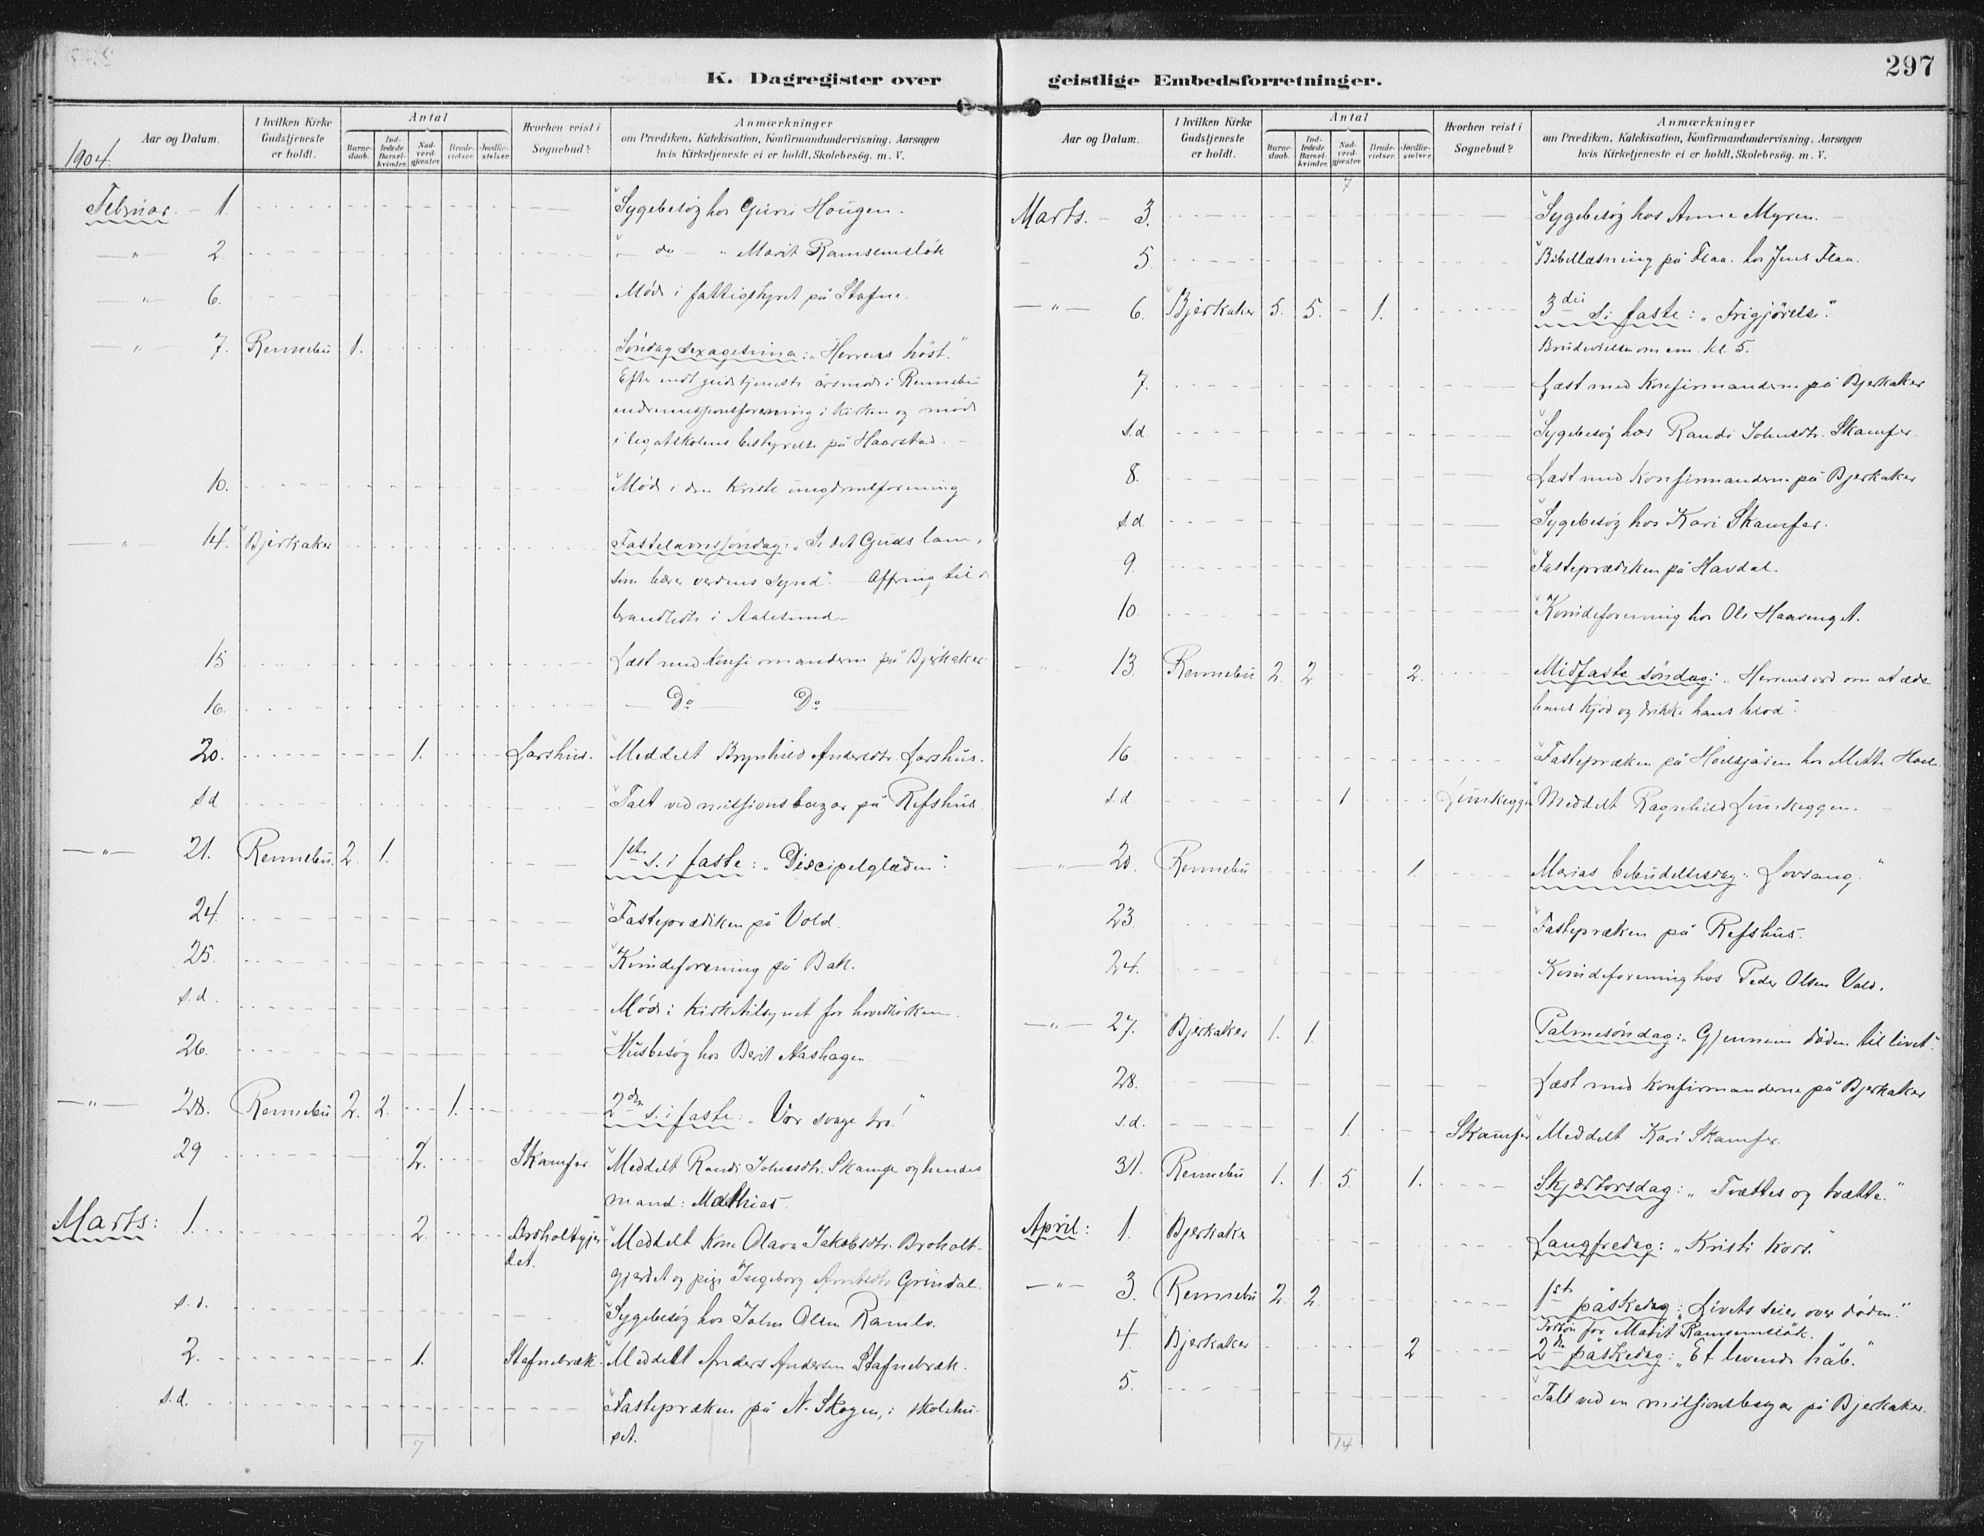 297
K. Dagregister over geistlige Embedsforretninger.
1904.
Aar og Datum.
I hvilken Kirke Gudstjeneste er holdt.
Antal
Barnedaab. Indledede Barselkvinder. Nadverdgjester. Brudevielser. Jordfæstelser.
Hvorhen reist i Sognebud?
Anmærkninger
om Prædiken, Katekisation, Konfirmandundervisning, Aarsagen hvis Kirketjeneste ei er holdt, Skolebesög. m. V.
Februar. - 1. Sygebesøg hos Guri Hougen.
" 2 do - " Marit Ramsemsløk
" 6. Møde i fattigstyret på Stafne.
" 7. Rennebu 1. Søndag sexagesima: "Herrens høst."
Efter endt gudstjeneste årsmøde i Rennebu
indremissionsforening i kirken og møde
i legatskolens bestyrelse på Haarstad.
10. Møde i den kristl. ungdomsforening
" 14. Bjerkaker Fastelavnssøndag: "Se det Guds lam,
som bærer verdens synd". Offring til de
brandlidte i Aalesund.
15 Læst med konfirmanderne på Bjerkaker
16. Do Do
20. 1. Larshus. Meddelt Brynhild Andersdtr. Larshus.
s.d Talt ved missionsbazar på Refshus.
" 21. Rennebu. 2. 1. 1ste s. i faste: "Discipelglæden".
24. Fasteprædiken på Vold.
25. Kvindeforening på Bak.
s.d. Møde i kirketilsynet for hovedkirken.
26. Husbesøg hos Berit Aashagen.
" 28. Rennebu 2. 2. 1. 2den s. i faste: "Vor svage tro!"
29 2. Skamfer Meddelt Randi Johnsdtr. Skamfer og hendes
mand: Mathias.
Marts: 1. 2. Broholtgjer-
det. Meddelt kone Olava Jakobsdtr. Broholt-
gjerdet og pige Ingeborg Arntsdtr. Grindal.
s.d. Sygebesøg hos John Olsen Ramlo.
2. 1. Stafnebræk. Meddelt Anders Andersen Stafnebræk.
s.d. Fastepræken på N. Skogen, i skolehu-
set.
7
Aar og Datum.
I hvilken Kirke Gudstjeneste er holdt.
Antal
Barnedaab. Indledede Barselkvinder. Nadverdgjester. Brudevielser. Jordfæstelser.
Hvorhen reist i Sognebud?
Anmærkninger
om Prædiken, Katekisation, Konfirmandundervisning, Aarsagen hvis Kirketjeneste ei er holdt, Skolebesög. m. V.
7
Marts. - 3. Sygebesøg hos Anne Myren.
5. Bibellæsning på Flaa. hos Jens Flaa.
" 6. Bjerkaker 5. 5. 1. 3die s. i faste: "Frigjørelse".
Brudevielsen om em. kl. 5.
7. Læst med konfirmanderne på Bjerkaker
s.d Sygebesøg hos Randi Johnsdtr. Skamfer.
8. Læst med konfirmanderne på Bjerkaker
s.d Sygebesøg hos Kari Skamfer.
9. Fasteprædiken på Havdal.
10. Kvindeforening hos Ole Haavenget.
" 13. Rennebu 2. 2. 2. Midfaste søndag: "Herrens ord om at æde
hans kjød og drikke hans blod".
16 Fastepræken på Hoelsjåren hos Mette Hoel
s.d. 1 Lunkeggen Meddelt Ragnhild Lunkeggen.
" 20. Rennebu 1. Marias bebudelsesdag "Lovsang."
23. Fastepræken på Refshus.
24. Kvindeforening hos Peder Olsen Vold.
" 27. Bjerkaker 1. 1. Palmesøndag: "Gjennem døden til livet".
28. Læst med konfirmanderne på Bjerkaker
s.d. 1. Skamfer Meddelt Kari Skamfer.
31. Rennebu 1. 1. 5. 1. Skjærtorsdag: "Tvættes og tvætte."
April: 1. Bjerkaker Langfredag: "Kristi kors."
" 3. Rennebu 2. 2. 1ste påskedag: "Livets seier over døden."
Forbøn for Marit Ramsemsløk.
4. Bjerkaker 2 2den påskedag: "Et levende håb."
5. Talt ved en missionsbasar på Bjerkaker.
14